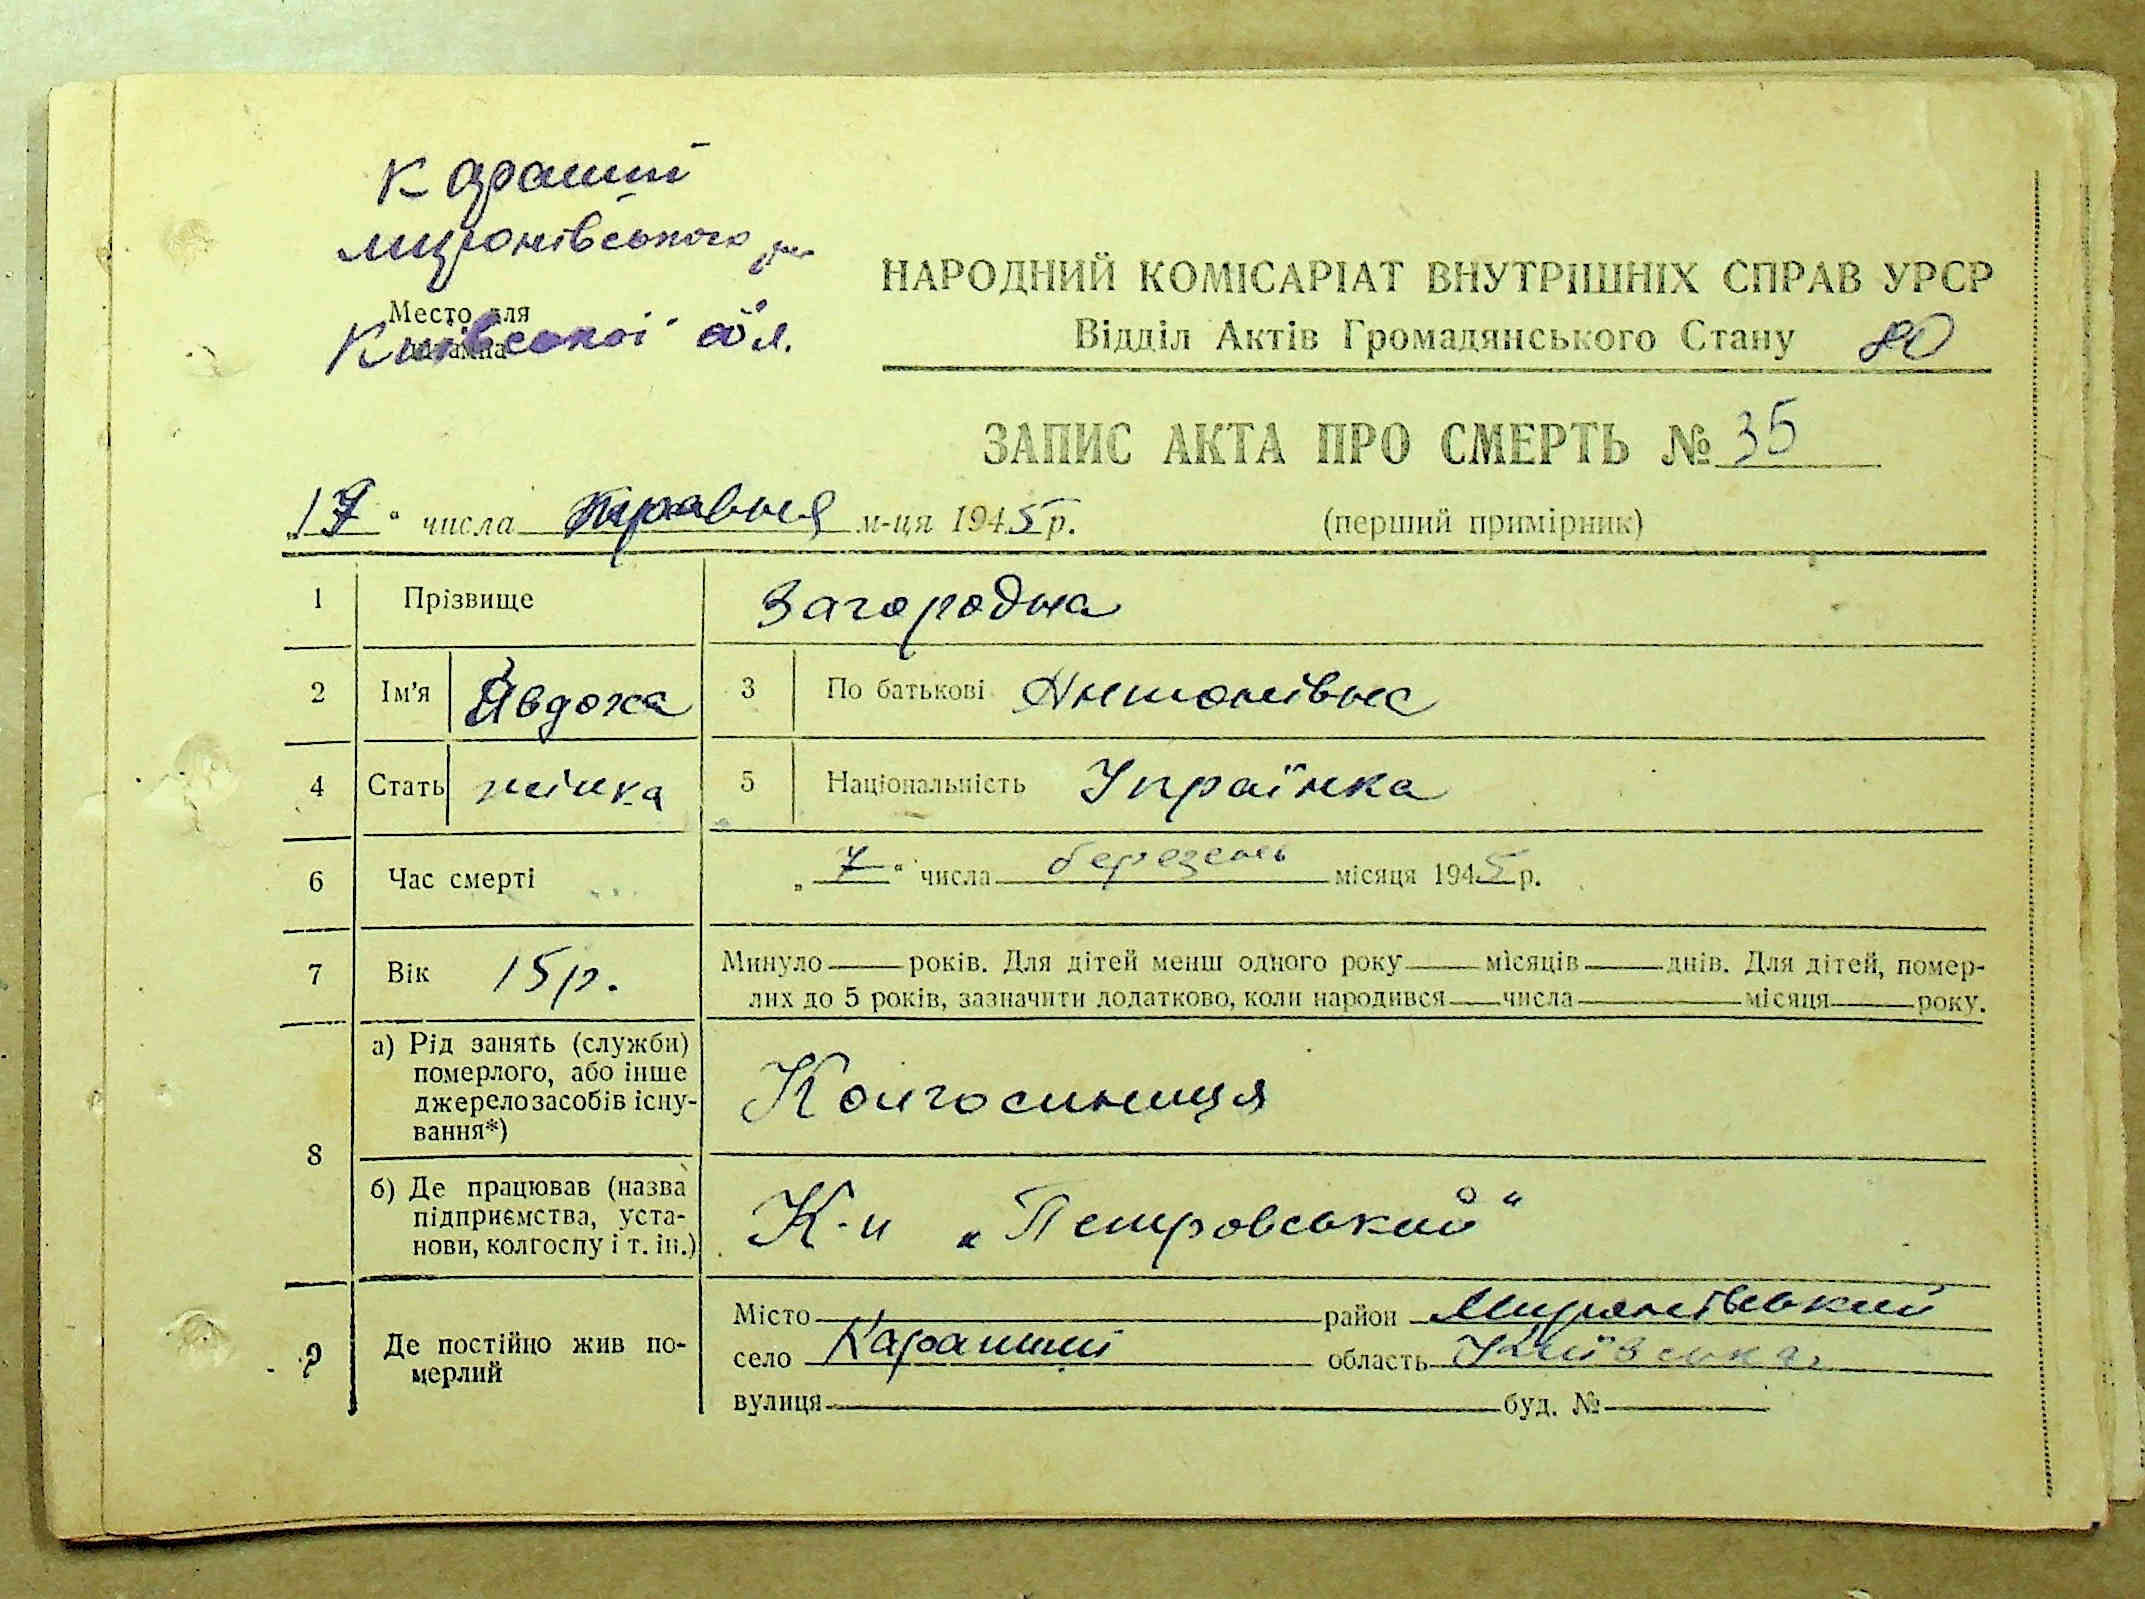 Карапиші
миронівського р-ну
Место для
Київської обл.
НАРОДНИЙ КОМІСАРІАТ ВНУТРІШНІХ СПРАВ УРСР
Відділ Актів Громадянського Стану 80
ЗАПИС АКТА ПРО СМЕРТЬ № 35
„17“ числа травня м-ця 1945 р. (перший примірник)
1 Прізвище Загородна
2 Ім'я Явдоха 3 По батькові Антонівна
4 Стать жінка 5 Національність Українка
6 Час смерті „7“ числа березень місяця 1945 р.
7 Вік 15 р. Минуло років. Для дітей менш одного року місяців днів. Для дітей, помер-
лих до 5 років, зазначити додатково, коли народився числа місяця року.
8 а) Рід занять (служби)
померлого, або інше
джерело засобів існу-
вання*)
Колгоспниця
б) Де працював (назва
підприємства, уста-
нови, колгоспу і т. ін.)
К-п „Петровський“
9 Де постійно жив по-
мерлий
Місто район Миронівський
село Карапиші область Київська
вулиця буд. №